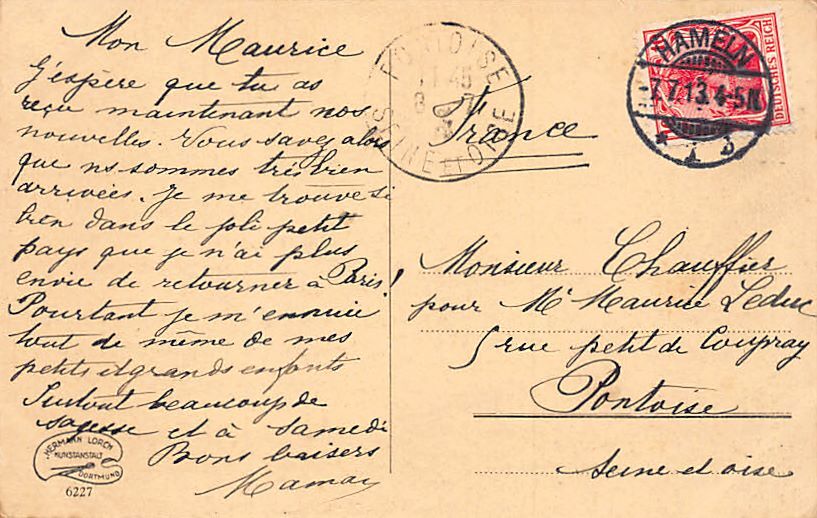 Mon Maurice
J'espère que tu as
reçu maintenant nos
nouvelles. Vous savez alors
que ns sommes très bien
arrivées. Je me trouve si
bien dans le joli petit
pays que je n'ai plus
envie de retourner à Paris!
Pourtant je m'ennuie
tout de même de mes
petits et grands enfants
Surtout beaucoup de
sagesse et à samedi
Bons baisers
Maman
HERMANN LORCH
KUNSTANSTALT
DORTMUND
6227
PONTOISE
SEINE ET OISE
France
HAMELN
7.7.13.4-5N.
* 1 b
DEUTSCHES REICH
Monsieur Chauffier
pour Mr Maurice Leduc
5 rue petit de Coupray
Pontoise
Seine et oise